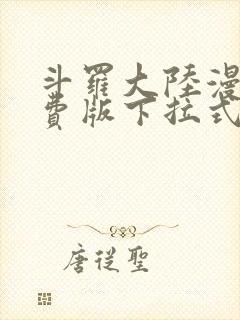 斗羅大陸漫
費版下拉式
唐從聖